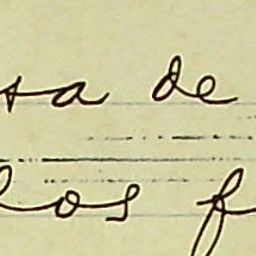 sa de
los f